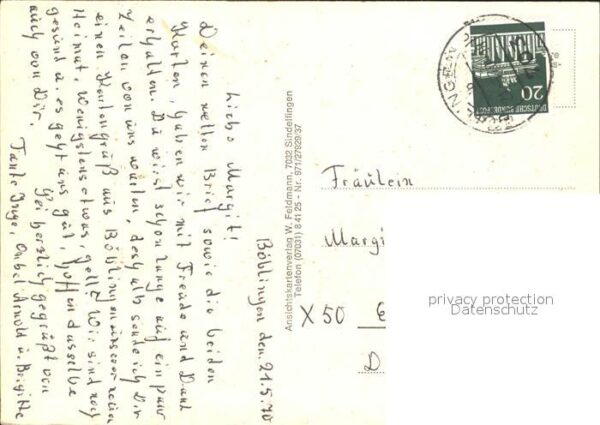 Böblingen den. 21.5.70
Liebe Margit!
Deinen netten Brief sowie die beiden
Karten, haben wir mit Freude und Dank
erhalten. Du wirst schon lange auf ein paar
Zeilen von uns warten, deshalb sende ich Dir
einen Kartengruß aus Böblingen unserer neuen
Heimat. Wenigstens etwas, gell? Wir sind noch
gesund u. es geht uns gut, hoffen dasselbe
auch von Dir.
Sei herzlich gegrüßt von
Tante Inge, Onkel Arnold u. Brigitte
Ansichtskartenverlag W. Feldmann, 7032 Sindelfingen
Telefon (07031) 8 41 25 - Nr. 971/27629/37
DEUTSCHE BUNDESPOST
20
Fräulein
Margi
X 50
D
privacy protection
Datenschutz